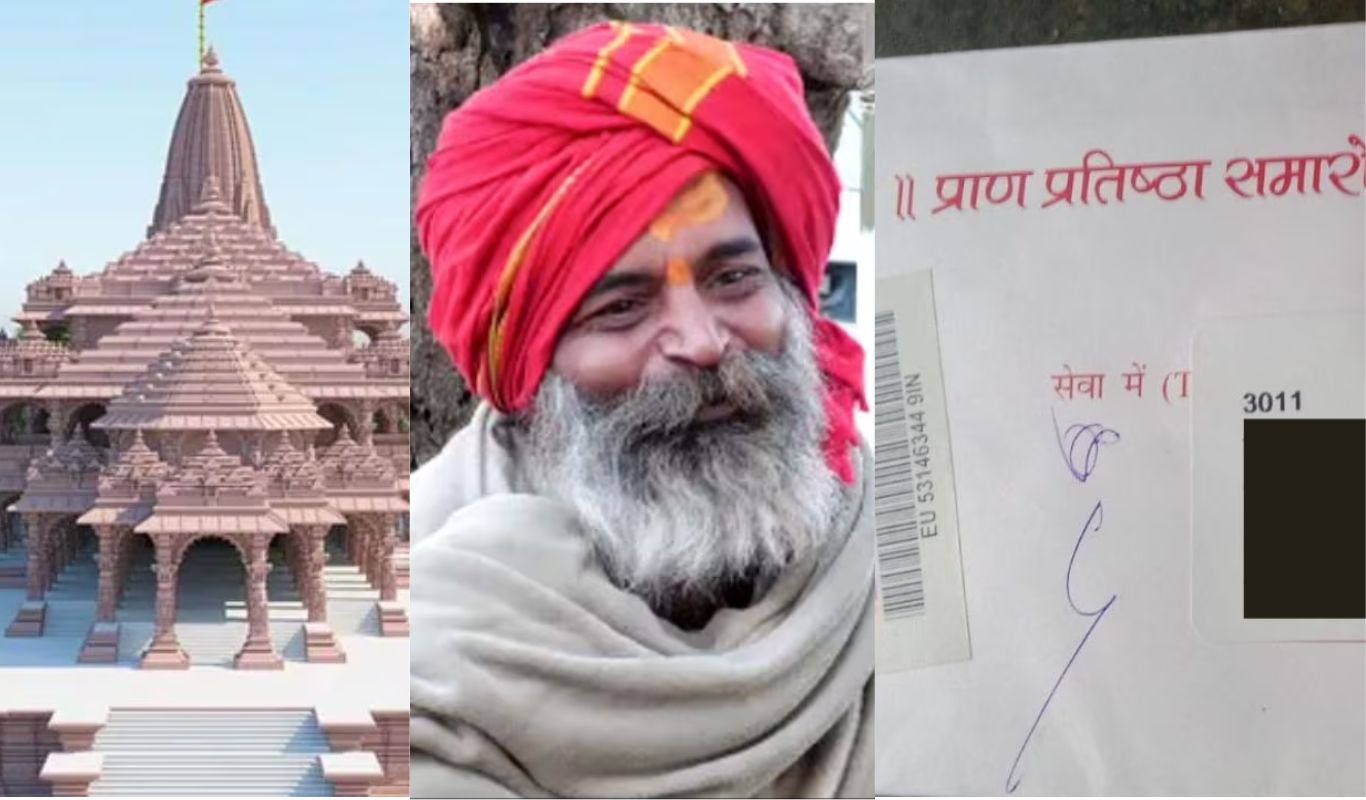 ॥ प्राण प्रतिष्ठा समारो
EU 53146344 9IN
सेवा में (T
3011